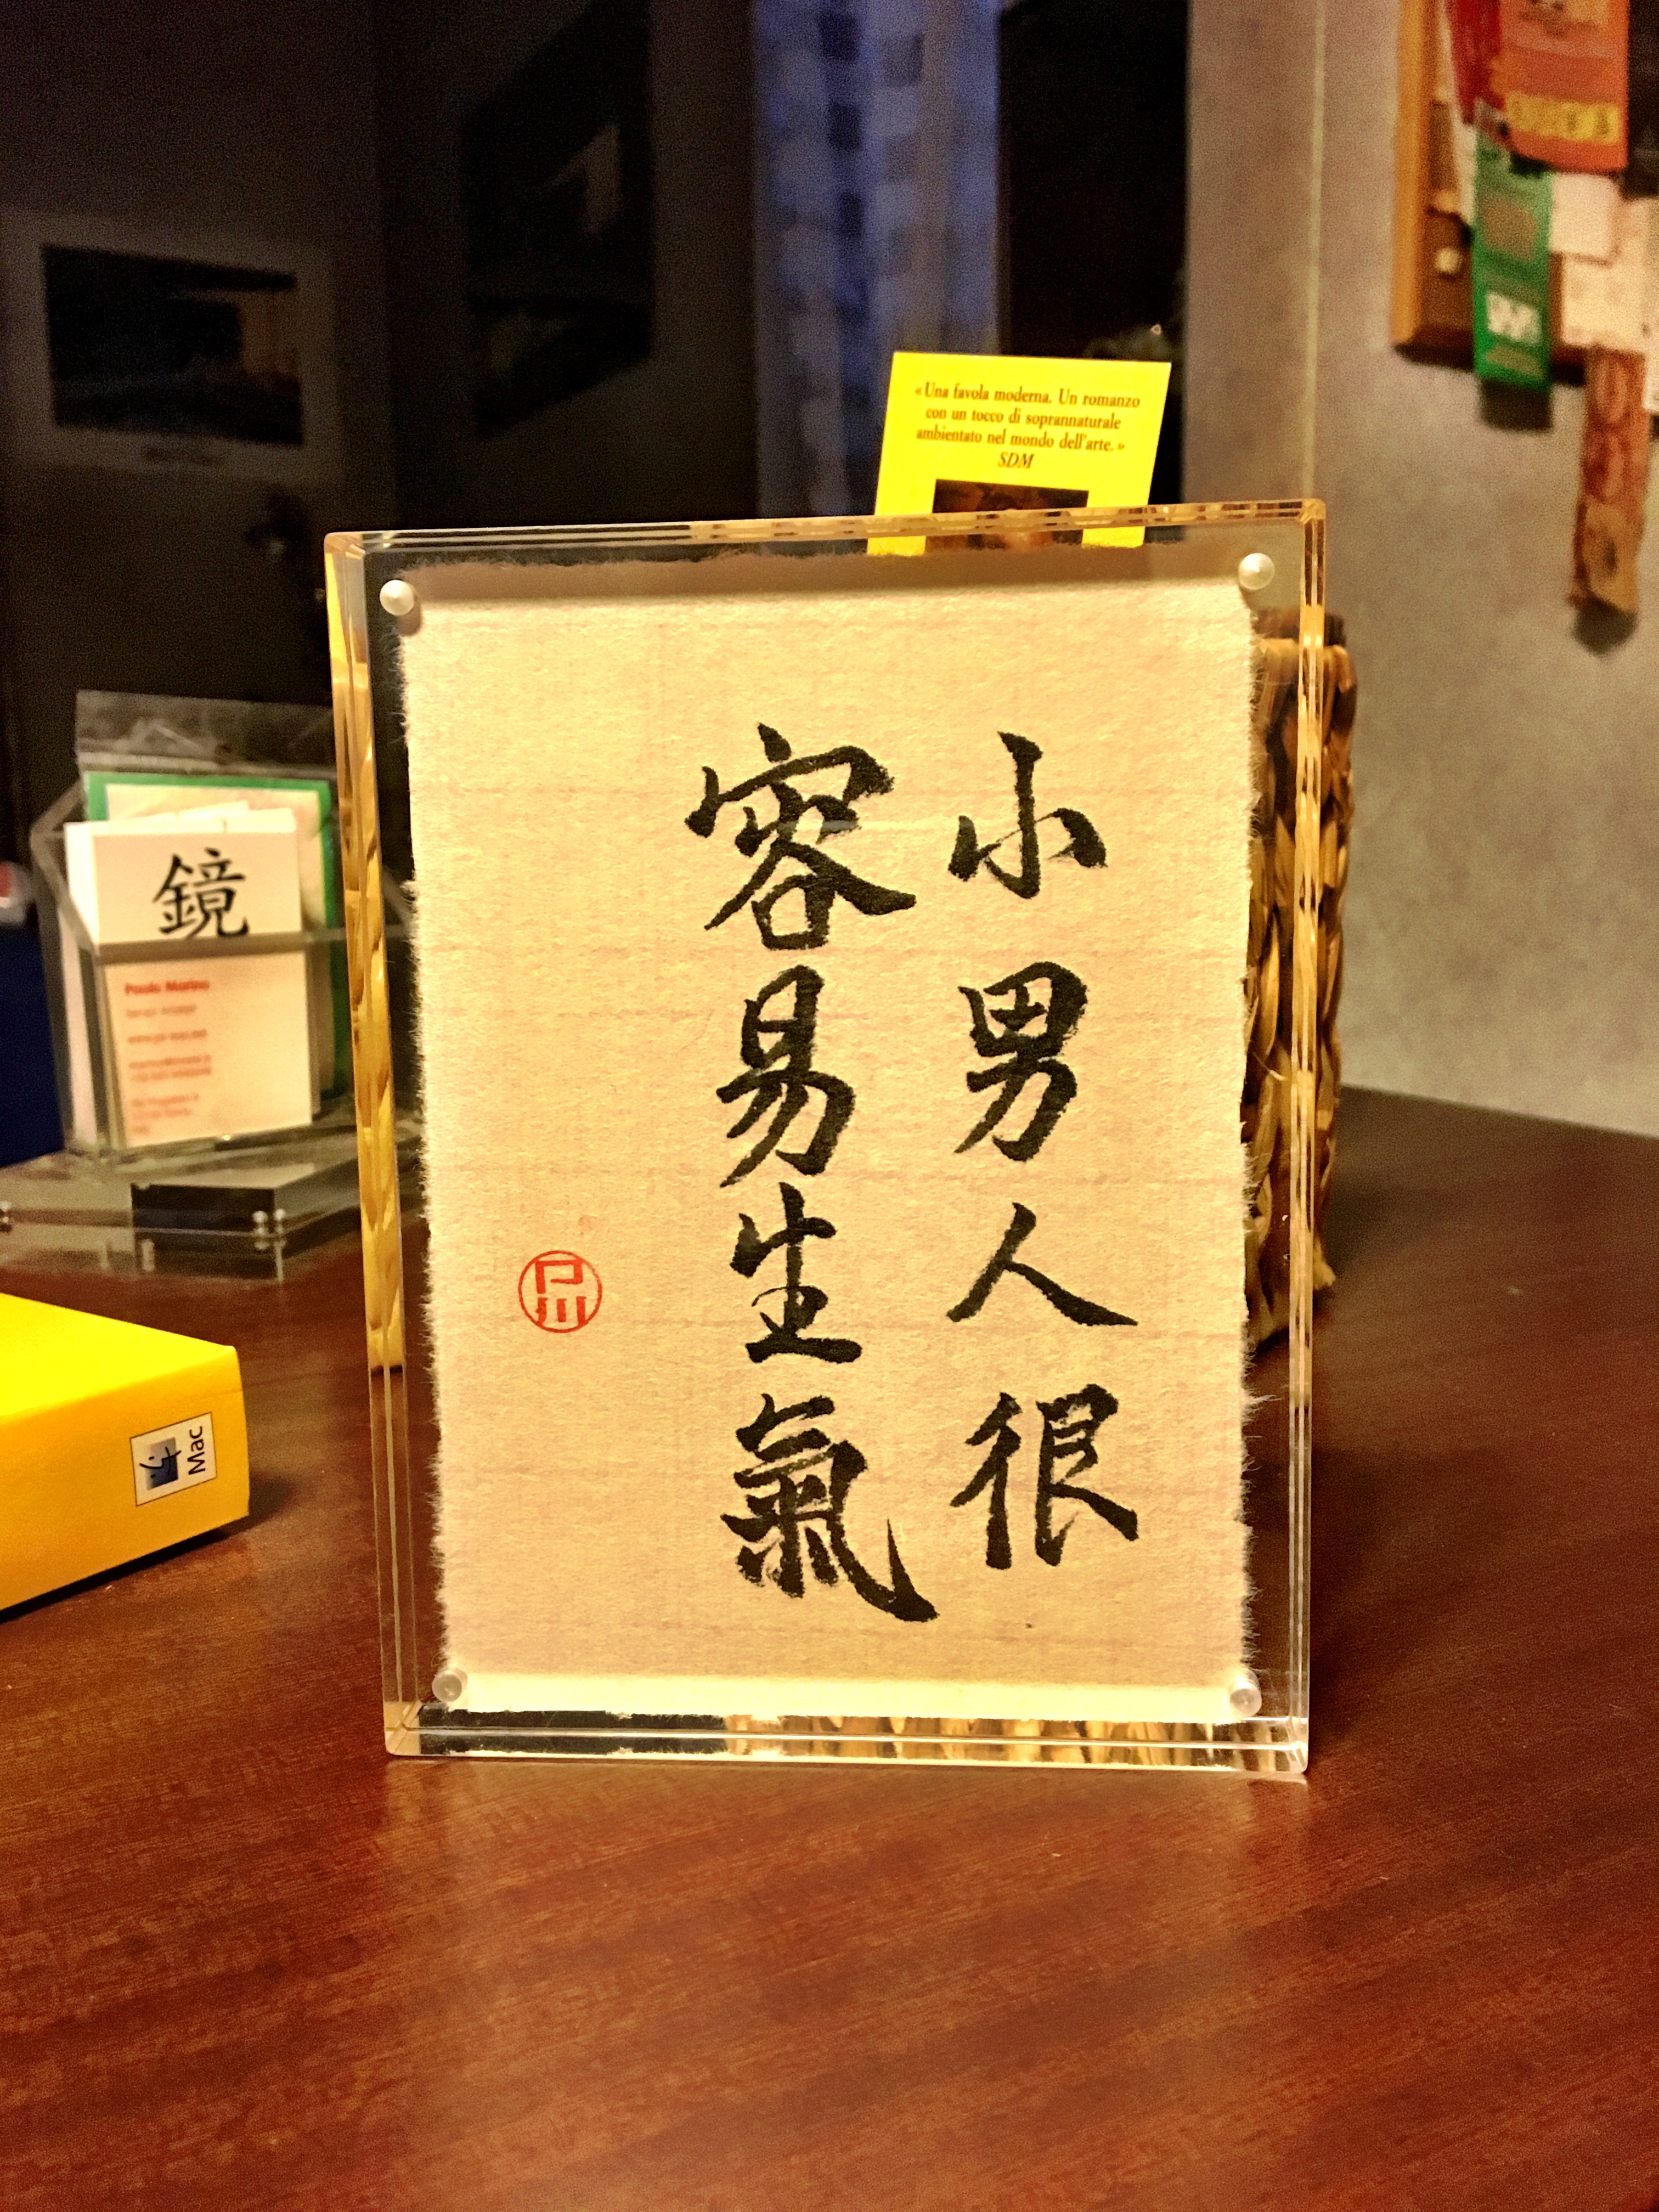 «Una favola moderna. Un romanzo
con un tocco di soprannaturale
ambientato nel mondo dell'arte.»
SDM
小男人很
容易生氣
鏡
Paolo Marino
Mac